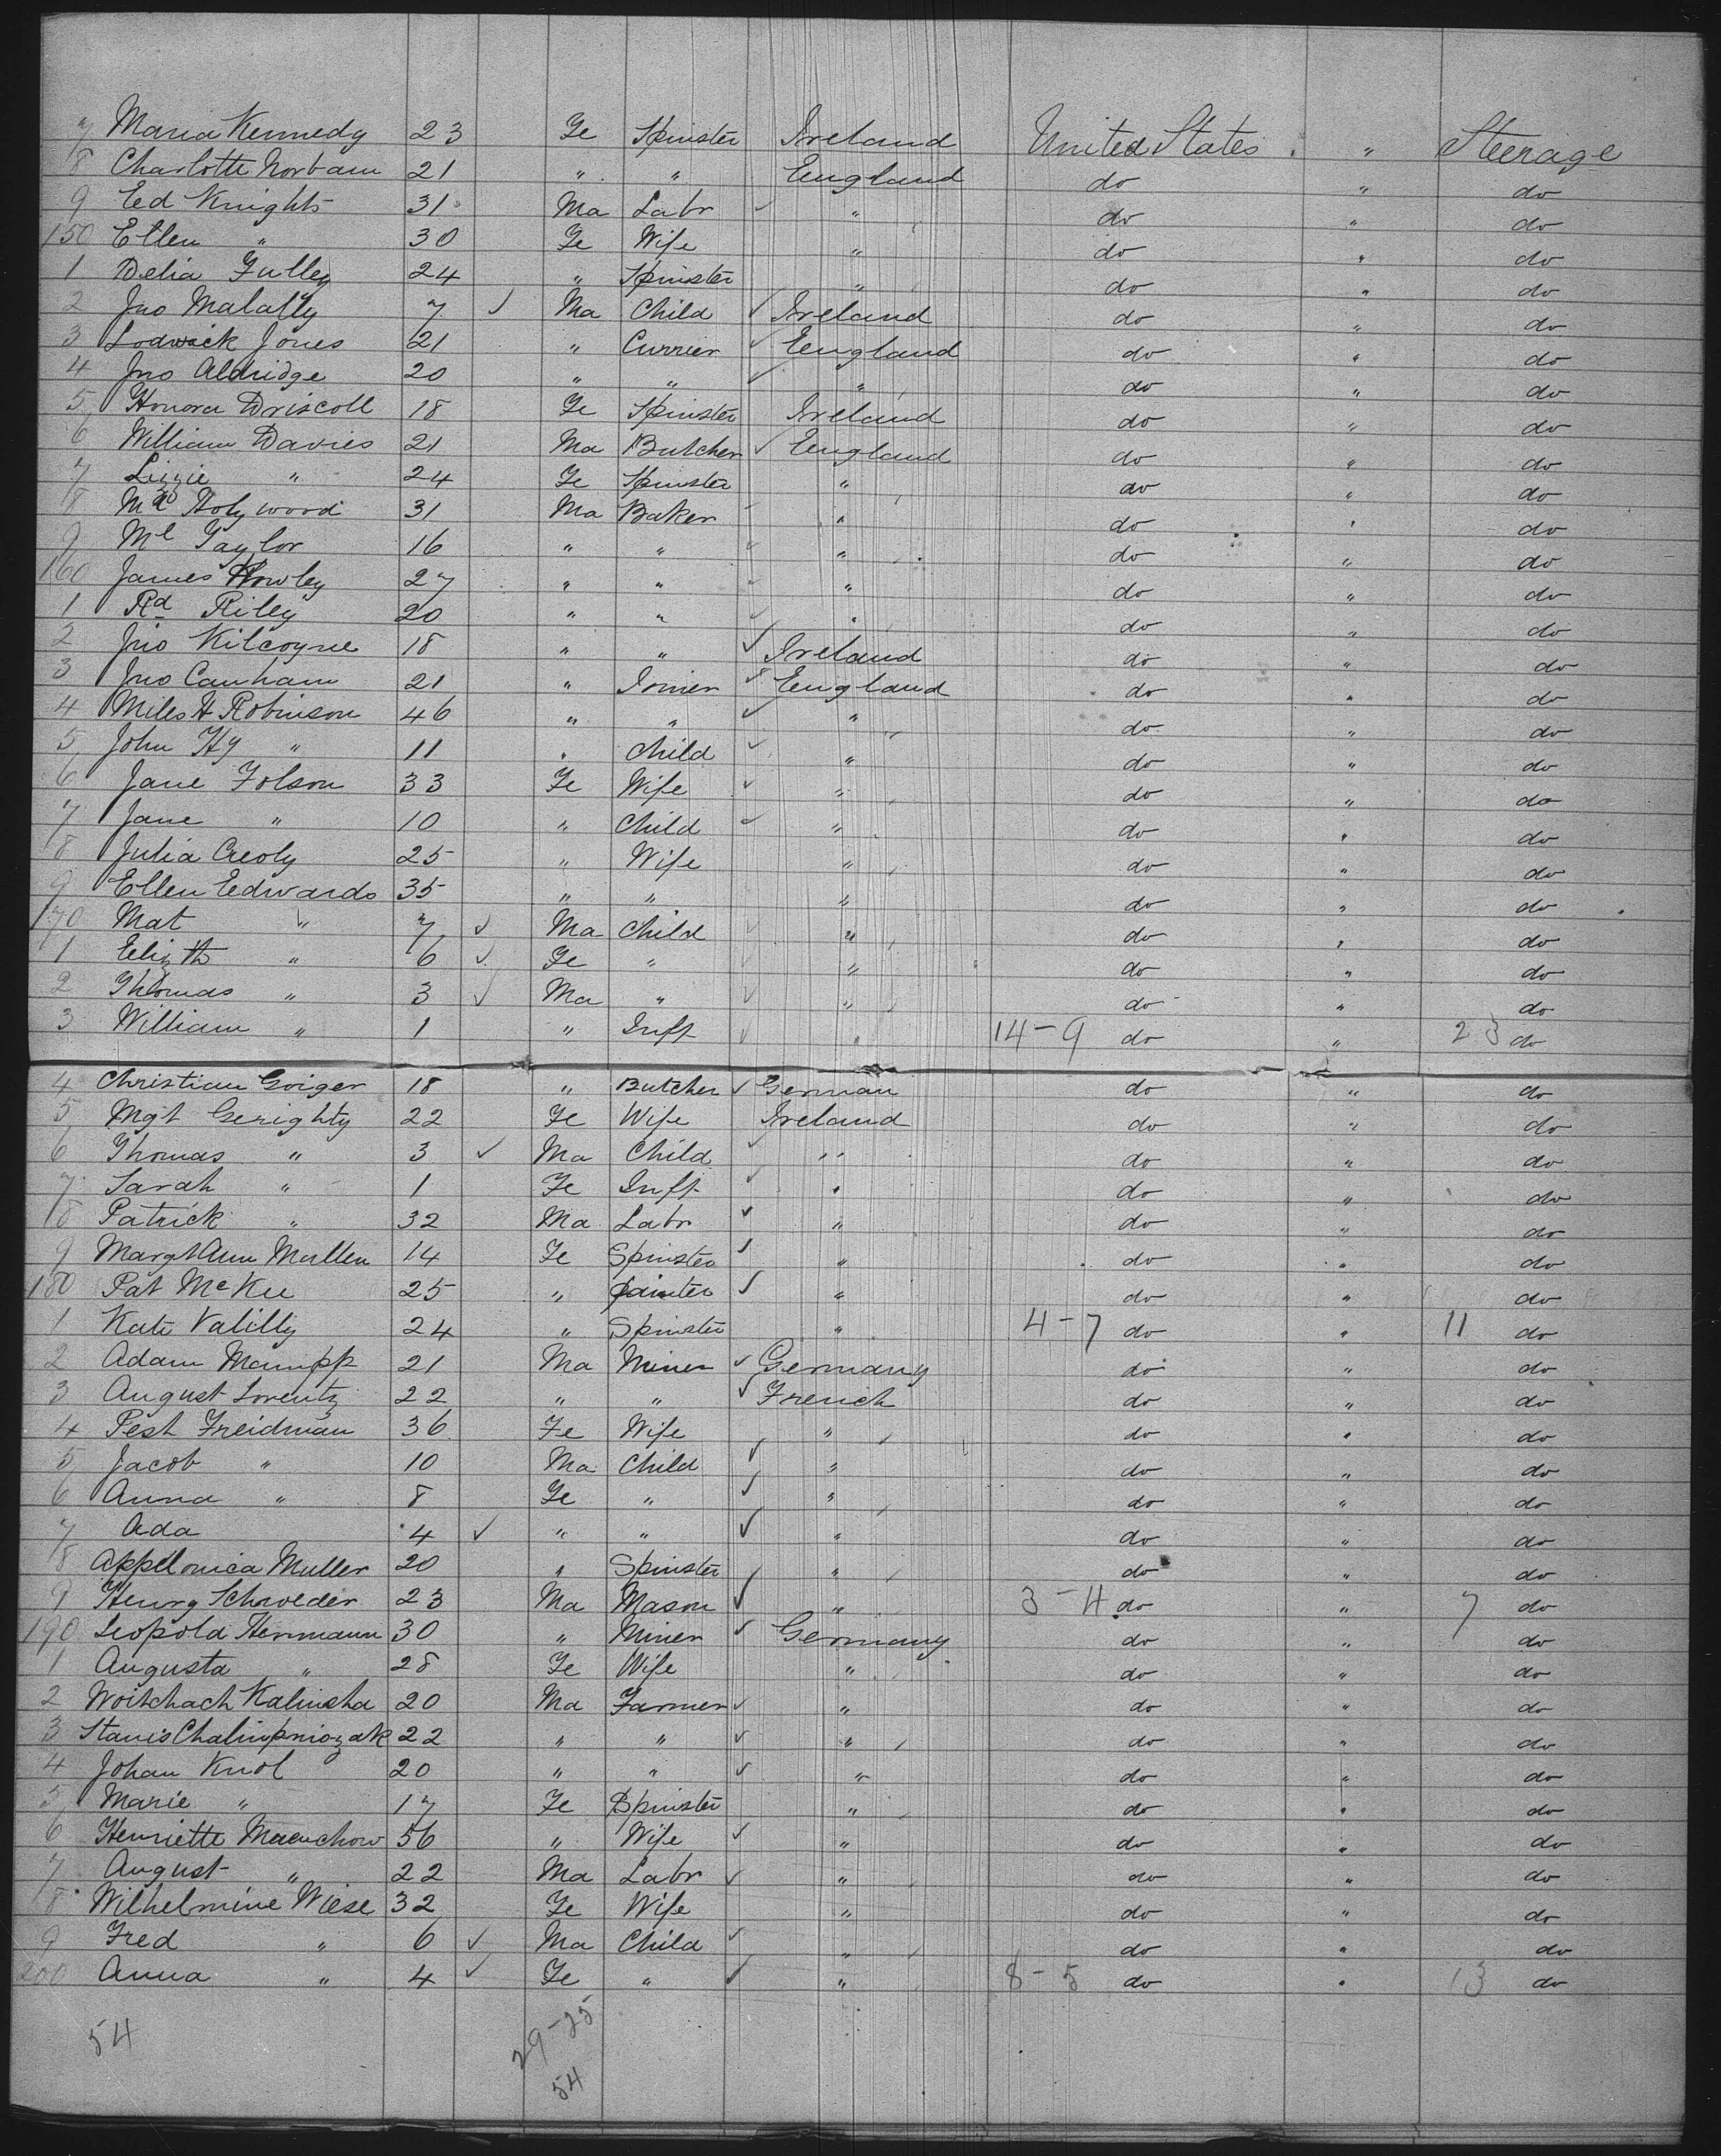 7 Maria Kennedy 23 Fe Spinster Ireland United States " Steerage
8 Charlotte Norbam 21 " " England do " do
9 Ed Knights 31 Ma Labr ✓ " do " do
150 Ellen " 30 Fe Wife " do " do
1 Delia Gulley 24 " Spinster " do " do
2 Jno Malally 7 ✓ Ma Child ✓ Ireland do " do
3 Lodwick Jones 21 " Currier ✓ England do " do
4 Jno Aldridge 20 " " ✓ " do " do
5 Honora Driscoll 18 Fe Spinster Ireland do " do
6 William Davies 21 Ma Butcher ✓ England do " do
7 Lizzie " 24 Fe Spinster " do " do
8 Holywood 31 Ma Baker " do " do
9 Ml Taylor 16 " " ✓ " do " do
160 James 27 " " ✓ " do " do
1 Rd Riley 20 " " ✓ " do " do
2 Jno Kilcoyne 18 " " ✓ Ireland do " do
3 Jno Canham 21 " Joiner ✓ England do " do
4 Miles H Robinson 46 " " ✓ " do " do
5 John Hy " 11 " Child ✓ " do " do
6 Jane Folson 33 Fe Wife ✓ " do " do
7 Jane " 10 " Child ✓ " do " do
8 Julia Creoly 25 " Wife " do " do
9 Ellen Edwards 35 " " " do " do
170 Mat " 7 ✓ Ma Child ✓ " do " do
1 Elizth " 6 ✓ Fe " ✓ " do " do
2 Thomas " 3 ✓ Ma " ✓ " do " do
3 William " 1 " Inft ✓ " 14-9 do " 23 do
4 Christian Goiger 18 " Butcher ✓ German do " do
5 Mgt Gerighty 22 Fe Wife Ireland do " do
6 Thomas " 3 ✓ Ma Child ✓ " do " do
7 Sarah " 1 Fe Inft ✓ " do " do
8 Patrick " 32 Ma Labr ✓ " do " do
9 Margt Ann Mullen 14 Fe Spinster ✓ " do " do
180 Pat McKee 25 " Painter ✓ " do " do
1 Kate Valilly 24 " Spinster " 4-7 do " 11 do
2 Adam Mampp 21 Ma Miner ✓ Germany do " do
3 August Lorentz 22 " " ✓ French do " do
4 Pesh Freidman 36 Fe Wife " do " do
5 Jacob " 10 Ma Child ✓ " do " do
6 Anna " 8 Fe " ✓ " do " do
7 Ada 4 ✓ " " ✓ " do " do
8 Appelonica Muller 20 " Spinster " do " do
9 Henry Schroeder 23 Ma Mason ✓ " 3-4 do " 7 do
190 Leopold Hermann 30 " Miner ✓ Germany do " do
1 Augusta " 28 Fe Wife " do " do
2 Woitchach Kalinska 20 Ma Farmer ✓ " do " do
3 Stanis 22 " " ✓ " do " do
4 Johan Knol 20 " " ✓ " do " do
5 Marie " 17 Fe Spinster " do " do
6 Henriette Maenchow 56 " Wife ✓ " do " do
7 August " 22 Ma Labr ✓ " do " do
8 Wilhelmine Wiese 32 Fe Wife " do " do
9 Fred " 6 ✓ Ma Child ✓ " do " do
200 Anna " 4 ✓ Fe " ✓ " 8-5 do " 13 do
54 29-25
54